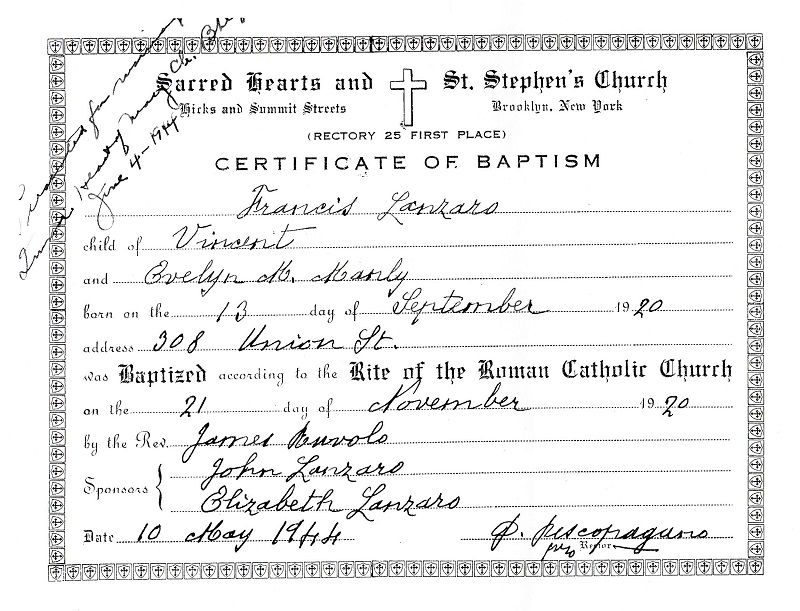 for marriage
Ch. Bklyn
June 4-1944
Sacred Hearts and St. Stephen's Church
Hicks and Summit Streets Brooklyn, New York
(RECTORY 25 FIRST PLACE)
CERTIFICATE OF BAPTISM
Francis Lanzaro
child of Vincent
and Evelyn M. Manly
born on the 13 day of September 1920
address 308 Union St.
was Baptized according to the Rite of the Roman Catholic Church
on the 21 day of November 1920
by the Rev. James Ruvolo
Sponsors { John Lanzaro
Elizabeth Lanzaro
Date 10 May 1944 P. Pescopagano
pro Rector